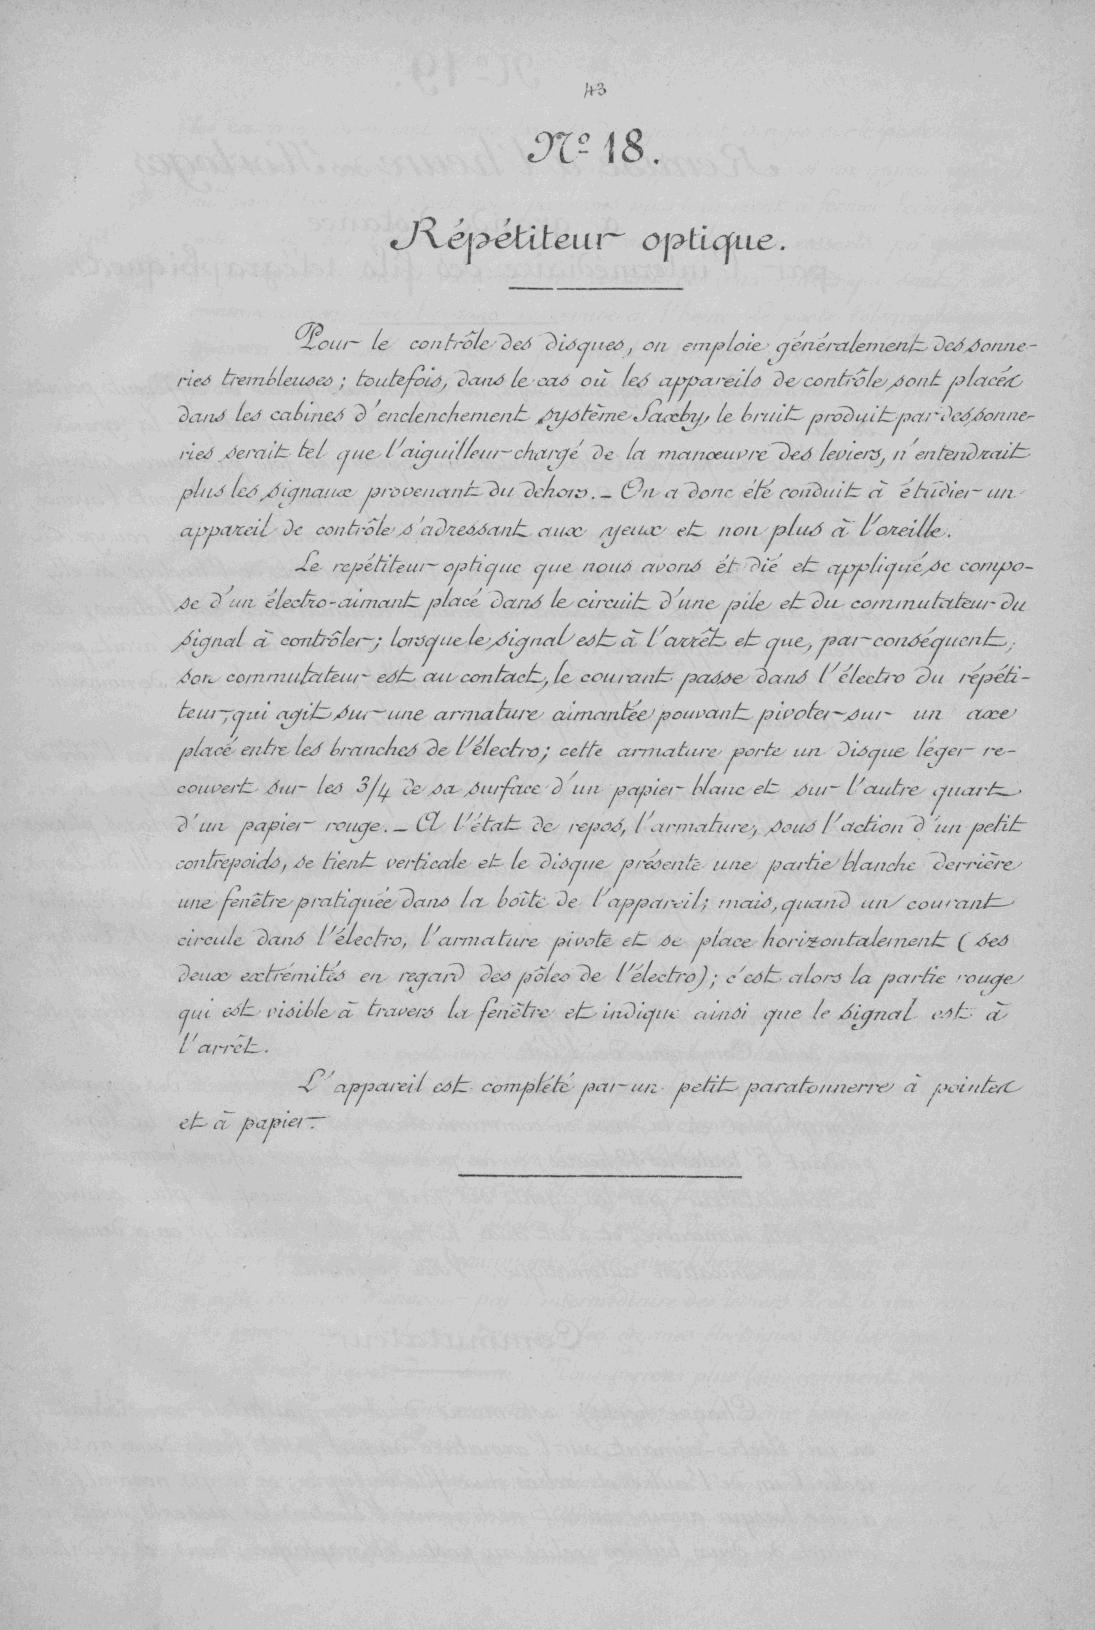 43
Nº 18.
Répétiteur optique.
Pour le contrôle des disques, on emploie généralement des sonne-
ries trembleuses ; toutefois, dans le cas où les appareils de contrôle sont placés
dans les cabines d'enclenchement système Saxby, le bruit produit par des sonne-
ries serait tel que l'aiguilleur chargé de la manœuvre des leviers, n'entendrait
plus les signaux provenant du dehors. _ On a donc été conduit à étudier un
appareil de contrôle s'adressant aux yeux et non plus à l'oreille.
Le repétiteur optique que nous avons ét dié et appliqué, se compo-
se d'un électro-aimant placé dans le circuit d'une pile et du commutateur du
signal à contrôler ; lorsque le signal est à l'arrêt et que, par conséquent,
son commutateur est au contact, le courant passe dans l'électro du répéti-
teur, qui agit sur une armature aimantée pouvant pivoter sur un axe
placé entre les branches de l'électro ; cette armature porte un disque léger re-
couvert sur les 3/4 de sa surface d'un papier blanc et sur l'autre quart
d'un papier rouge. _ A l'état de repos, l'armature, sous l'action d'un petit
contrepoids, se tient verticale et le disque présente une partie blanche derrière
une fenêtre pratiquée dans la boîte de l'appareil ; mais, quand un courant
circule dans l'électro, l'armature pivote et se place horizontalement ( ses
deux extrémités en regard des pôles de l'électro) ; c'est alors la partie rouge
qui est visible à travers la fenêtre et indique ainsi que le signal est à
l'arrêt.
L'appareil est complété par un petit paratonnerre à pointes
et à papier.